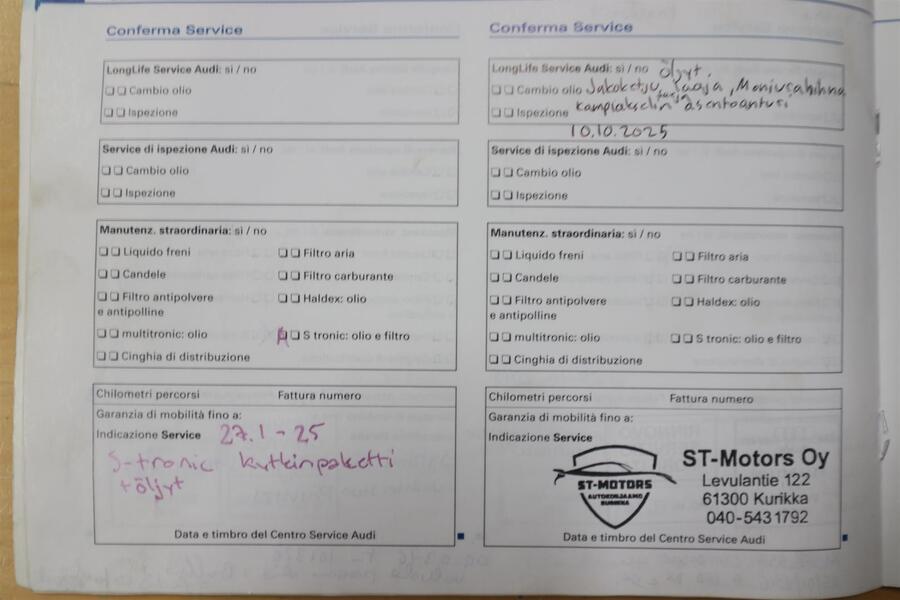 Conferma Service
LongLife Service Audi: sì / no
❏ ❏ Cambio olio
❏ ❏ Ispezione
Service di ispezione Audi: sì / no
❏ ❏ Cambio olio
❏ ❏ Ispezione
Manutenz. straordinaria: sì / no
❏ ❏ Liquido freni ❏ ❏ Filtro aria
❏ ❏ Candele ❏ ❏ Filtro carburante
❏ ❏ Filtro antipolvere ❏ ❏ Haldex: olio
e antipolline
❏ ❏ multitronic: olio ❏ ❏ S tronic: olio e filtro
❏ ❏ Cinghia di distribuzione
Chilometri percorsi Fattura numero
Garanzia di mobilità fino a:
Indicazione Service 27.1-25
S-tronic kytkinpaketti
+öljyt
Data e timbro del Centro Service Audi
Conferma Service
LongLife Service Audi: sì / no öljyt,
❏ ❏ Cambio olio Jakoketju, sarja, Moniurahihna
❏ ❏ Ispezione kampiakselin asentoanturi
10.10.2025
Service di ispezione Audi: sì / no
❏ ❏ Cambio olio
❏ ❏ Ispezione
Manutenz. straordinaria: sì / no
❏ ❏ Liquido freni ❏ ❏ Filtro aria
❏ ❏ Candele ❏ ❏ Filtro carburante
❏ ❏ Filtro antipolvere ❏ ❏ Haldex: olio
e antipolline
❏ ❏ multitronic: olio ❏ ❏ S tronic: olio e filtro
❏ ❏ Cinghia di distribuzione
Chilometri percorsi Fattura numero
Garanzia di mobilità fino a:
Indicazione Service
ST-MOTORS
AUTOKORJAAMO
KURIKKA
ST-Motors Oy
Levulantie 122
61300 Kurikka
040-543 1792
Data e timbro del Centro Service Audi